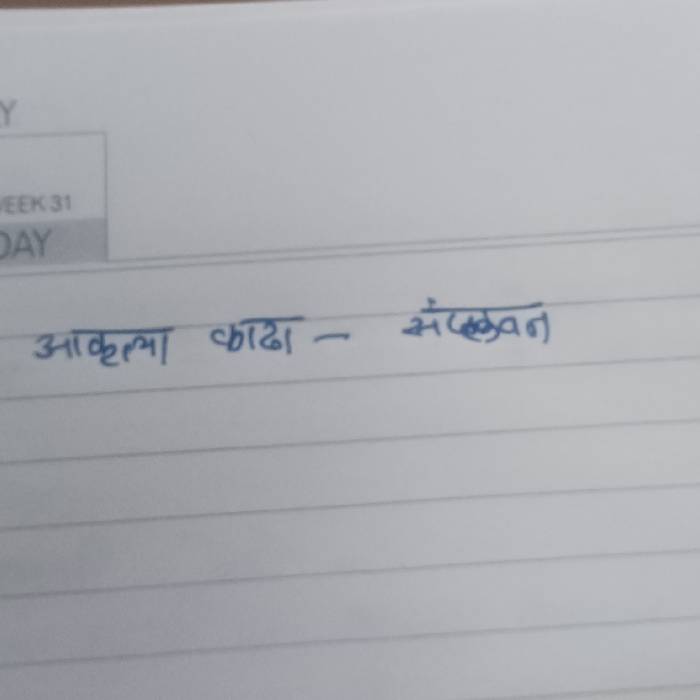 Y
WEEK 31
DAY
आकृत्या काढा – संप्लवन